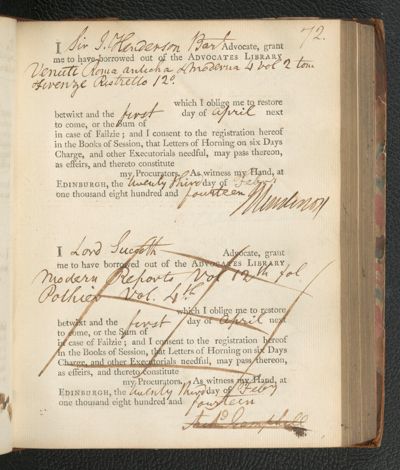 72.
I Sir J. Henderson Bart Advocate, grant
me to have borrowed out of the ADVOCATES LIBRARY
Venuti Roma anticha & Moderna 4 vol 2 tom
Firenze Ristretto 12o.
which I oblige me to restore
betwixt and the first day of April next
to come, or the Sum of
in case of Failzie; and I consent to the registration hereof
in the Books of Session, that Letters of Horning on six Days
Charge, and other Executorials needful, may pass thereon,
as effeirs, and thereto constitute
my Procurators. As witness my Hand, at
EDINBURGH, the twenty third day of Feby
one thousand eight hundred and fourteen
I Lord Succoth Advocate, grant
me to have borrowed out of the ADVOCATES LIBRARY
Modern Reports Vol 12th fol
Pothier Vol. 4th
which I oblige me to restore
betwixt and the first day of April next
to come, or the Sum of
in case of Failzie; and I consent to the registration hereof
in the Books of Session, that Letters of Horning on six Days
Charge, and other Executorials needful, may pass thereon,
as effeirs, and thereto constitute
my Procurators. As witness my Hand, at
EDINBURGH, the twenty third day of Feby
one thousand eight hundred and fourteen
Archd Campbell